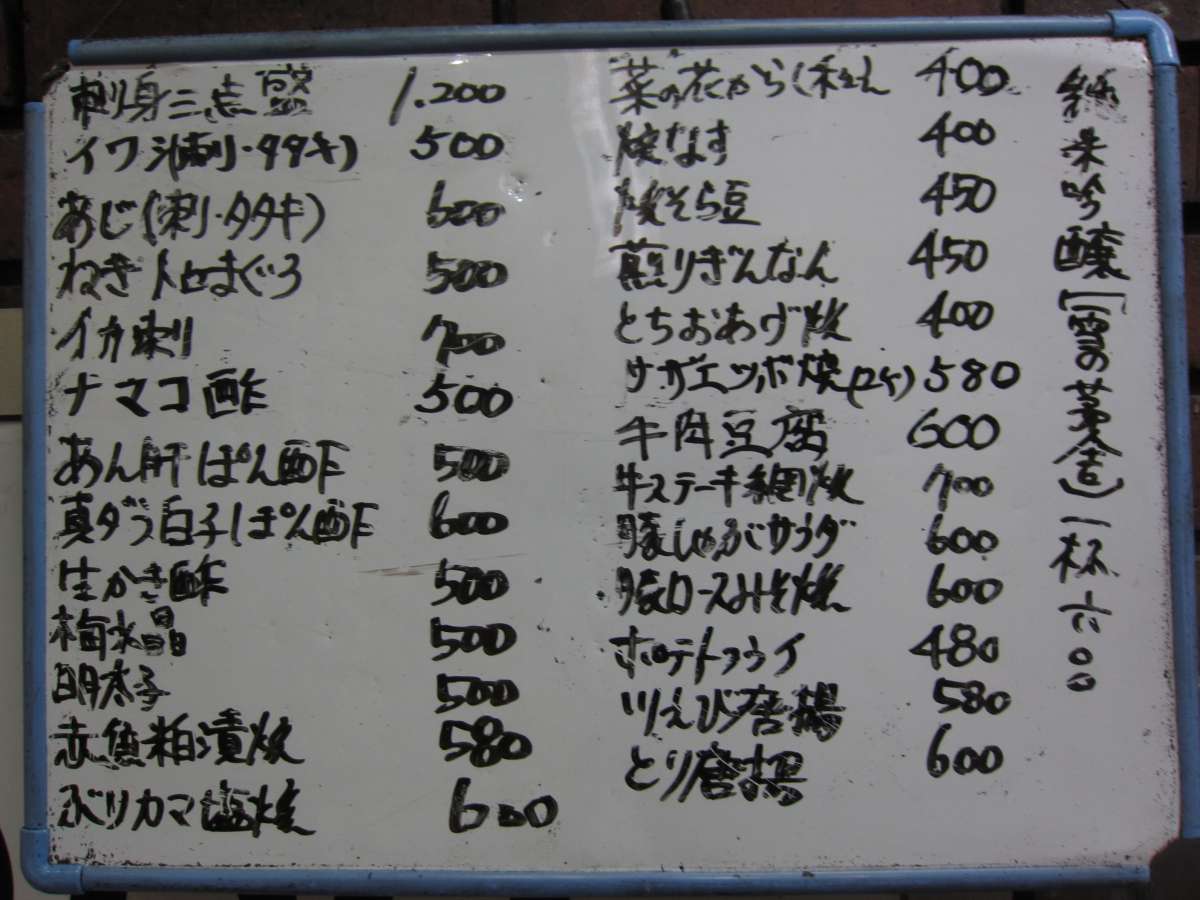 刺身三点盛 1.200
イワシ(刺・タタキ) 500
あじ(刺・タタキ) 600
ねぎトロまぐろ 500
イカ刺 700
ナマコ酢 500
あん肝ぽん酢 500
真ダラ白子ぽん酢 600
生かき酢 500
梅水晶 500
明太子 500
赤魚粕漬焼 580
ぶりカマ塩焼 600
菜の花からし和え 400
焼なす 400
焼そら豆 450
煎りぎんなん 450
とちおあげ焼 400
サザエツボ焼(2ケ) 580
牛肉豆腐 600
牛ステーキ網焼 700
豚しゃぶサラダ 600
豚ロースみそ焼 600
ポテトフライ 480
川えび唐揚 580
とり唐揚 600
純米吟醸[雪の茅舎]一杯六〇〇